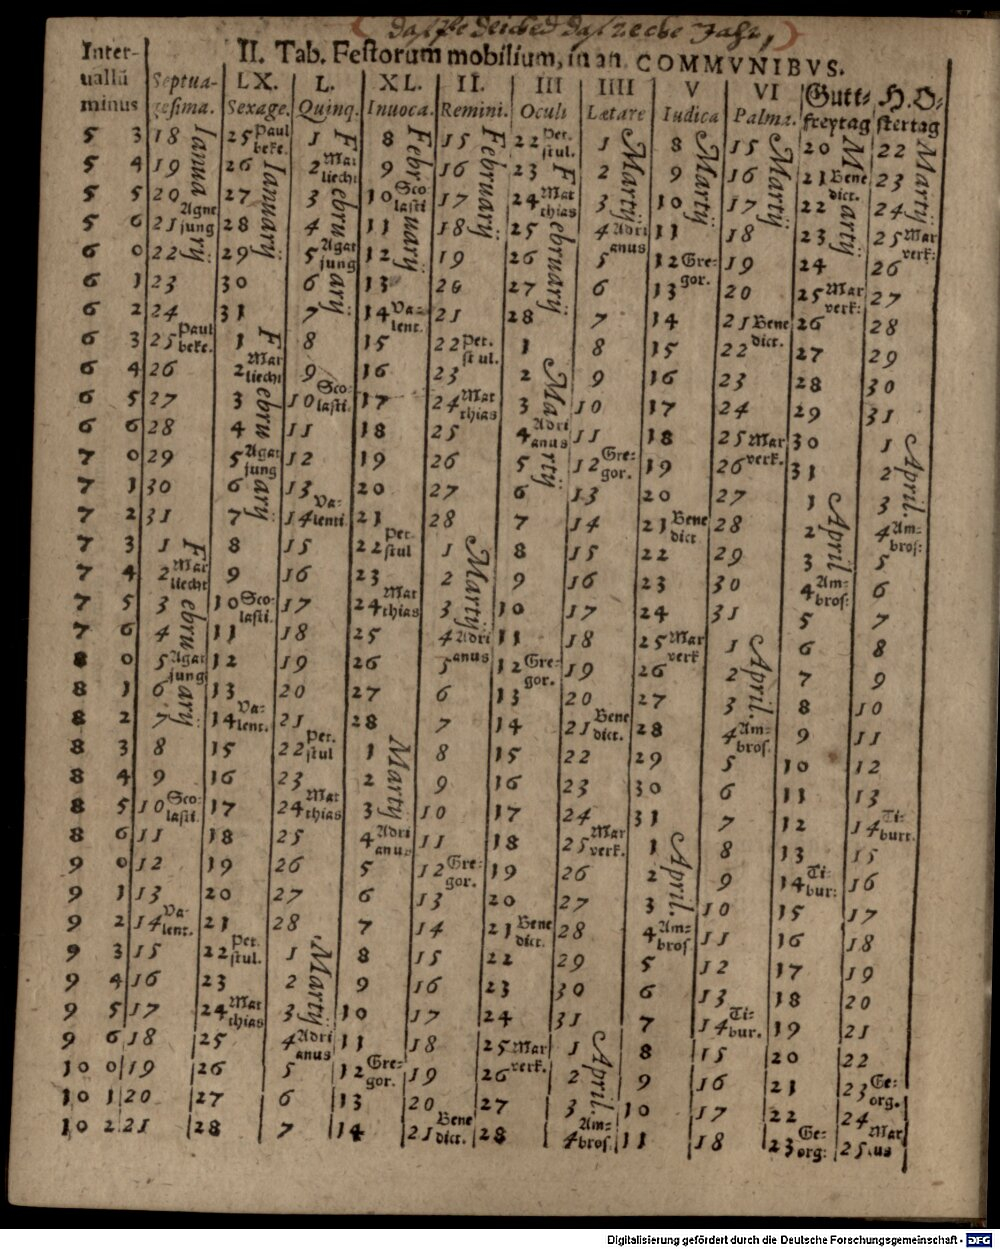 II. Tab. Festorum mobilium, in an. COMMVNIBVS.
Inter- uallū minus Septua- gesima. LX. Sexage. L. Quinq. XL. Inuoca. II. Remini. III Oculi IIII Lætare V Iudica VI Palma. Gutt= freytag H. O= stertag
5 3 18 Ianuary 25 Paul beke. Ianuary 1 February 8 February 15 February 22 Pet. stul. February 1 Marty 8 Marty 15 Marty 20 Marty 22 Marty
5 4 19 26 2 Mar liecht 9 16 23 2 9 16 21 Bene dict. 23
5 5 20 27 3 10 Sco lasti 17 24 Mat thias 3 10 17 22 24
5 6 21 Agne jung 28 4 11 18 25 4 Adri anus 11 18 23 25 Mar verk:
6 0 22 29 5 Agat jung 12 19 26 5 12 Gre= gor. 19 24 26
6 1 23 30 6 13 20 27 6 13 20 25 Mar verk: 27
6 2 24 31 7 14 Va= lent. 21 28 7 14 21 Bene dict. 26 28
6 3 25 Paul beke. 1 February 8 15 22 Pet. stul. 1 Marty 8 15 22 27 29
6 4 26 2 Mar liecht 9 16 23 2 9 16 23 28 30
6 5 27 3 10 Sco: lasti. 17 24 Mat thias 3 10 17 24 29 31
6 6 28 4 11 18 25 4 Adri anus 11 18 25 Mar verk. 30 1 April.
7 0 29 5 Agat jung 12 19 26 5 12 Gre= gor. 19 26 31 2
7 1 30 6 13 20 27 6 13 20 27 1 April 3
7 2 31 7 14 Va= lenti. 21 28 7 14 21 Bene dict 28 2 4 Am= bros:
7 3 1 February 8 15 22 Pet= stul 1 Marty 8 15 22 29 3 5
7 4 2 Mar liecht 9 16 23 2 9 16 23 30 4 Am= bros: 6
7 5 3 10 Sco= lasti. 17 24 Mat thias 3 10 17 24 31 5 7
7 6 4 11 18 25 4 Adri anus 11 18 25 Mar verk 1 April. 6 8
8 0 5 Agat jung 12 19 26 5 12 Gre= gor. 19 26 2 7 9
8 1 6 13 20 27 6 13 20 27 3 8 10
8 2 7 14 Va= lent. 21 28 7 14 21 Bene dict. 28 4 Am= bros. 9 11
8 3 8 15 22 Pet. stul 1 Marty 8 15 22 29 5 10 12
8 4 9 16 23 2 9 16 23 30 6 11 13
8 5 10 Sco= lasti. 17 24 Mat thias 3 10 17 24 31 7 12 14 Ti= burt.
8 6 11 18 25 4 Adri anus 11 18 25 Mar verk. 1 April. 8 13 15
9 0 12 19 26 5 12 Gre= gor. 19 26 2 9 14 Ti= bur: 16
9 1 13 20 27 6 13 20 27 3 10 15 17
9 2 14 Va= lent. 21 28 7 14 21 Bene dict. 28 4 Am= bros 11 16 18
9 3 15 22 Pet. stul. 1 Marty 8 15 22 29 5 12 17 19
9 4 16 23 2 9 16 23 30 6 13 18 20
9 5 17 24 Mat thias 3 10 17 24 31 7 14 Ti= bur. 19 21
9 6 18 25 4 Adri anus 11 18 25 Mar verk. 1 April. 8 15 20 22
10 0 19 26 5 12 Gre= gor. 19 26 2 9 16 21 23 Ge= org.
10 1 20 27 6 13 20 27 3 10 17 22 24
10 2 21 28 7 14 21 Bene dict. 28 4 Am= bros. 11 18 23 Ge= org: 25
Digitalisierung gefördert durch die Deutsche Forschungsgemeinschaft - DFG